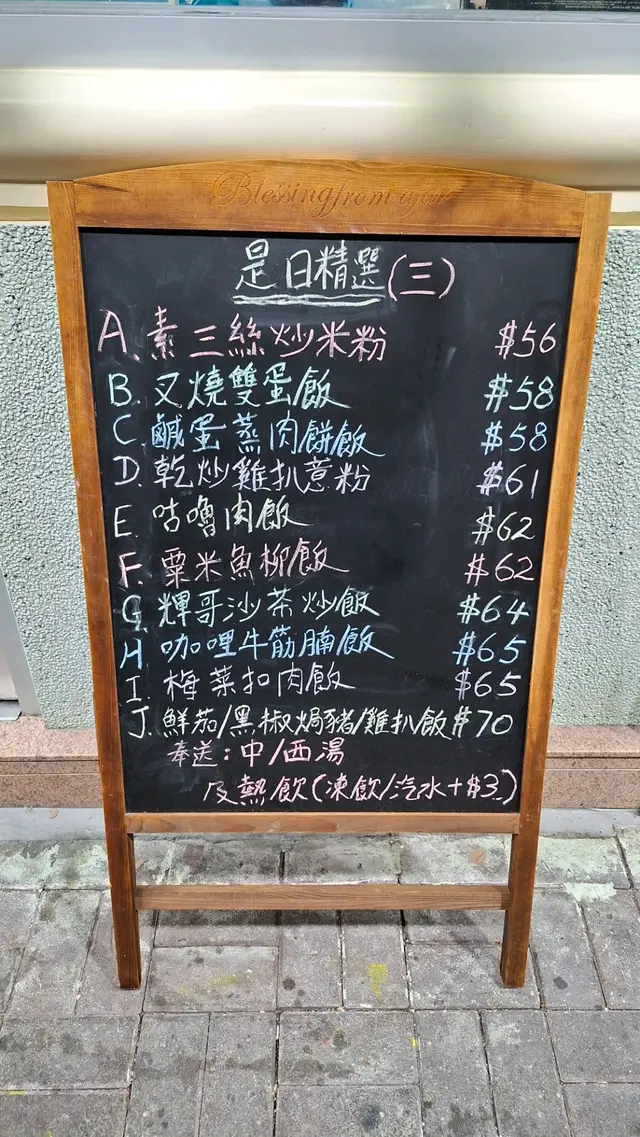 Blessing from ajar
是日精選(三)
A. 素三絲炒米粉 $56
B. 叉燒雙蛋飯 $58
C 鹹蛋蒸肉餅飯 $58
D. 乾炒雞扒薏粉 $61
E. 咕嚕肉飯 $62
F. 粟米魚柳飯 $62
G. 輝哥沙茶炒飯 $64
H 咖哩牛筋腩飯 $65
I. 梅菜扣肉飯 $65
J. 鮮茄/黑椒焗豬/雞扒飯 $70
奉送:中/西湯
及熱飲(凍飲/汽水+$3.)